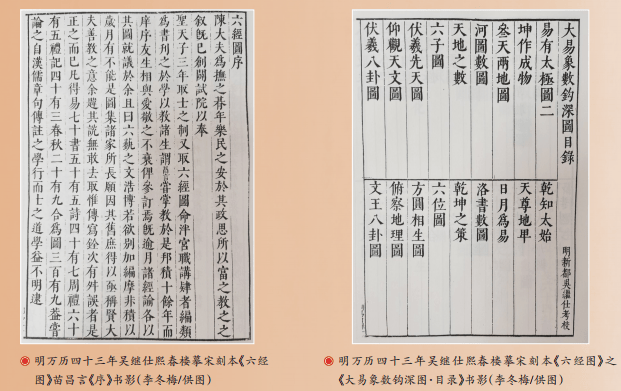 六經圖序
陳大夫爲撫之朞年樂民之安於其政思所以富之教之之
叙既已創闢試院以奉
聖天子三年取士之制又取六經圖命泮宮職講肄者編類
爲書刊之於學以教諸生謂昌言嘗掌教於是邦積十餘年而
庠序友生相與愛敬之不衰俾參訂焉既逾月諸經論各以
其圖就議於余且曰六蓺之文浩博若欲別加編摩非積以
歲月有不能是圖集諸家所長願因其舊庶得以亟稱賢大
夫善教之意余韙其說無敢去取惟傳寫銓次有舛誤者是
正之而已凡得易七十書五十有五詩四十有七周禮六十
有五禮記四十有三春秋二十有九合爲圖三百有九葢嘗
論之自漢儒章句傳註之學行而士之道學益不明逮
明万历四十三年吴继仕熙春楼摹宋刻本《六经
图》苗昌言《序》书影(李冬梅/供图)
大易象數鈎深圖目錄
明新都吳繼仕考校
易有太極圖二 乾知太始
坤作成物 天尊地卑
叄天兩地圖 日月爲易
河圖數圖 洛書數圖
天地之數 乾坤之策
六子圖 六位圖
伏羲先天圖 方圓相生圖
仰觀天文圖 俯察地理圖
伏羲八卦圖 文王八卦圖
明万历四十三年吴继仕熙春楼摹宋刻本《六经图》之
《大易象数钩深图·目录》书影(李冬梅/供图)